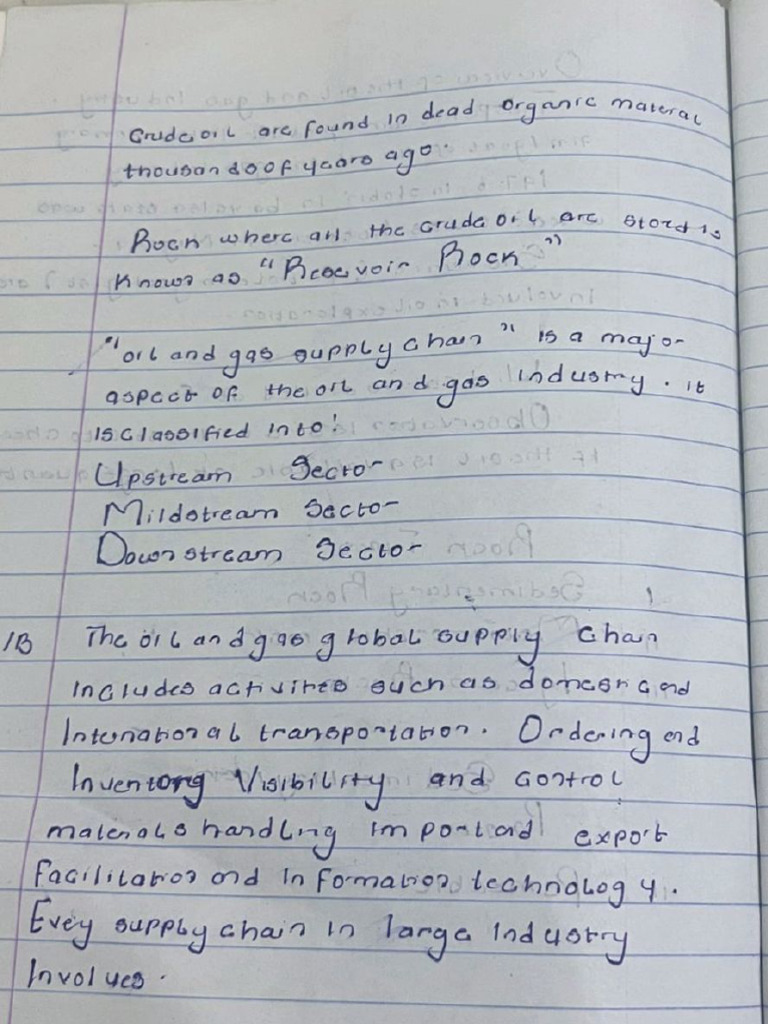 Crude oil are found in dead organic material
thousands of years ago.
Rock where all the crude oil are stord is
Known as "Reservoir Rock"
"oil and gas supply chain" is a major
aspect of the oil and gas industry. it
is classified into:
Upstream Sector
Mildstream Sector
Downstream Sector
1B The oil and gas global supply chain
includes activites such as domestic and
International transportation. Ordering and
Inventory Visibility and control
materials handling import and export
facilitation and information technology.
Evey supply chain in large industry
Involves.